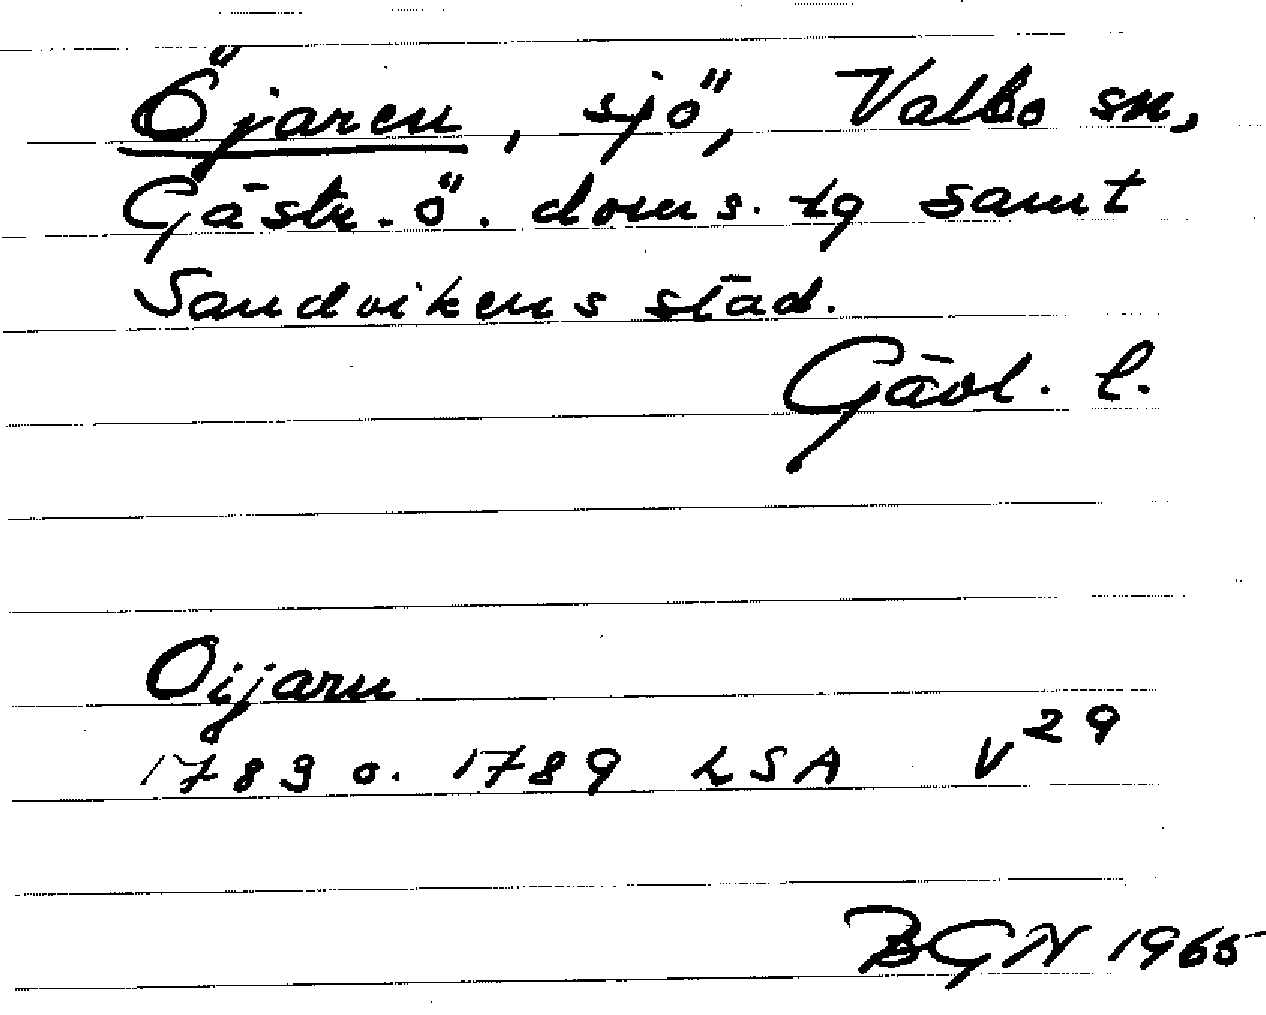 Öjaren, sjö, Valbo sn,
Gästr. ö. doms. tg samt
Sandvikens stad.
Gävl. l.
Oijarn
1783 o. 1789 LSA V 29
BGN 1965